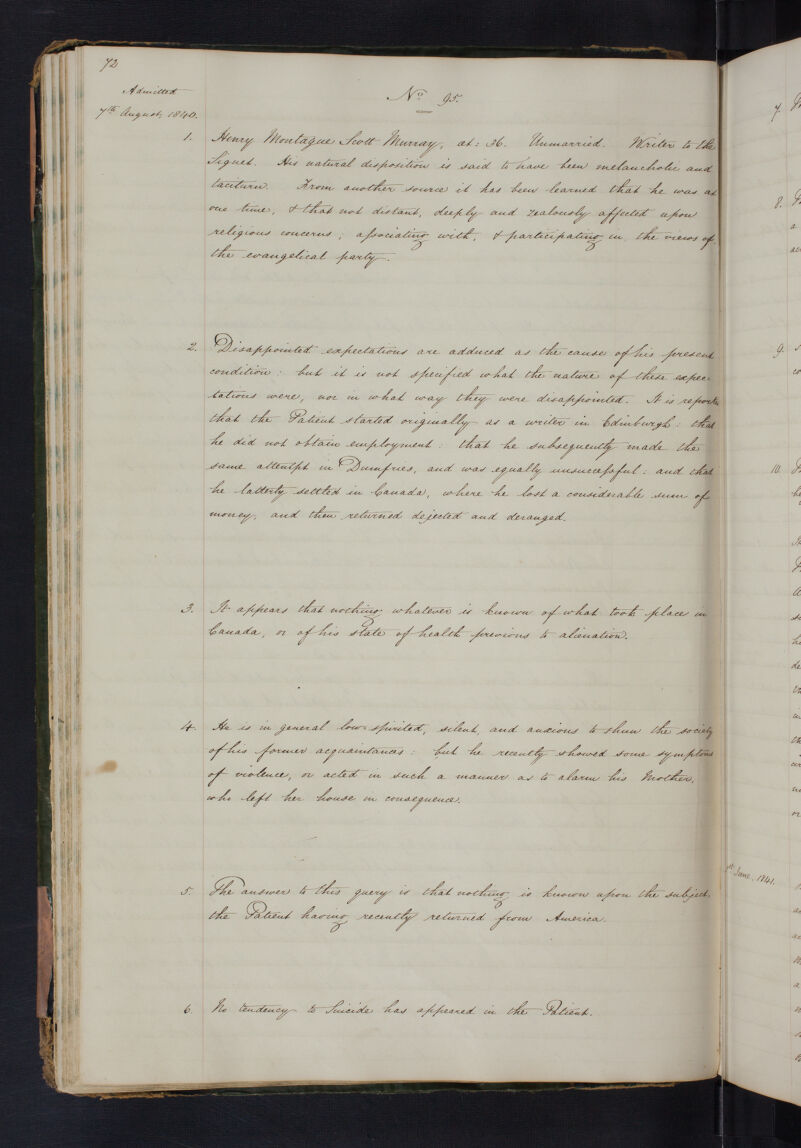 72
Admitted
7th August, 1840.
No 95.
1. Henry Montague Scott Murray, æt: 36. Unmarried. Writer to the
Signet. His natural disposition is said to have been melancholic and
taciturn. From another source it has been learned that he was at
one time, & that not distant, deeply and zealously affected upon
religious concerns; associating with, & participating in, the views of
the evangelical party.
2. Disappointed expectations are adduced as the cause of his present
condition: but it is not specified what the nature of these expec-
tations were, nor in what way they were disappointed. It is reported
that the Patient started originally as a writer in Edinburgh: that
he did not obtain employment: that he subsequently made the
same attentpt in Dumfries, and was equally unsuccessful: and that
he latterly settled in Canada, where he lost a considerable sum of
money, and then returned dejected and deranged.
3. It appears that nothing whatever is known of what took place in
Canada, or of his state of health previous to alienation.
4. He is in general low-spirited, silent, and anxious to shun the society
of his former acquaintances: but he recently showed some symptoms
of violence, or acted in such a manner as to alarm his Mother,
who left her house in consequence.
5. The answer to this query is that nothing is known upon the subject,
the Patient having recently returned from America.
6. No tendency to Suicide has appeared in the Patient.
7.
8.
9.
10.
1st June, 1841.